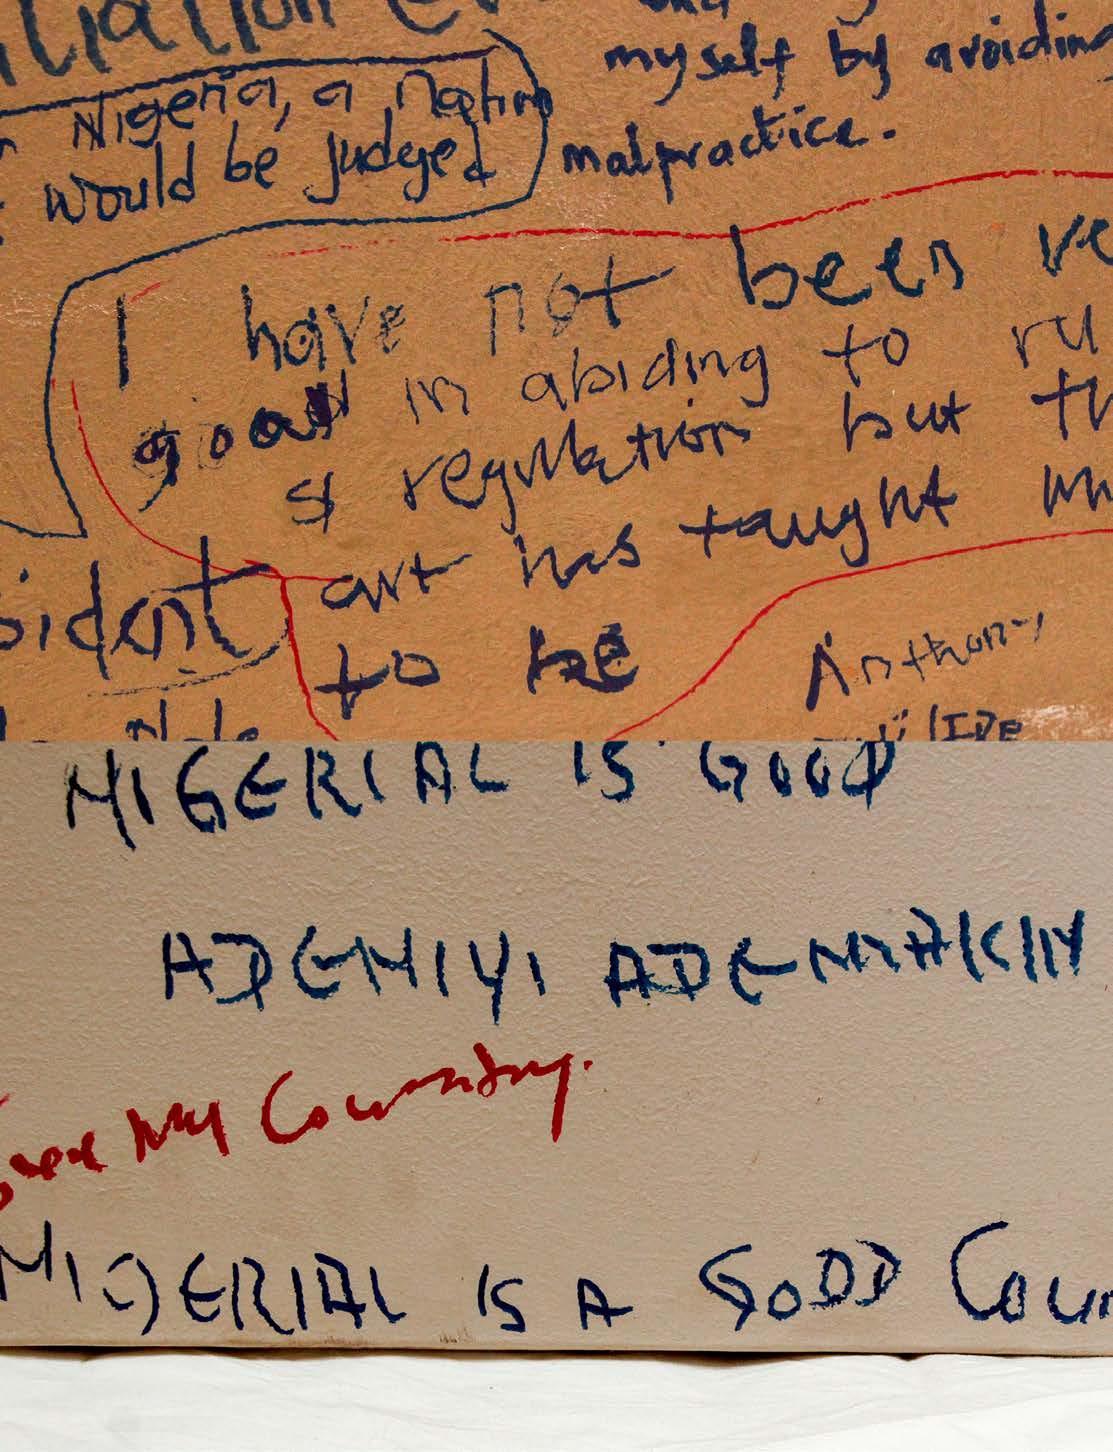 Nigeria, a Nation
would be judged
myself by avoiding
malpractice.
I have not been ve
good in abiding to ru
& regulation but th
art has taught me
to be
sident
Anthony
NIGERIAL IS GOOD
ADENIYI ADEMAKIN
My Country.
NIGERIAL IS A GOOD Coun